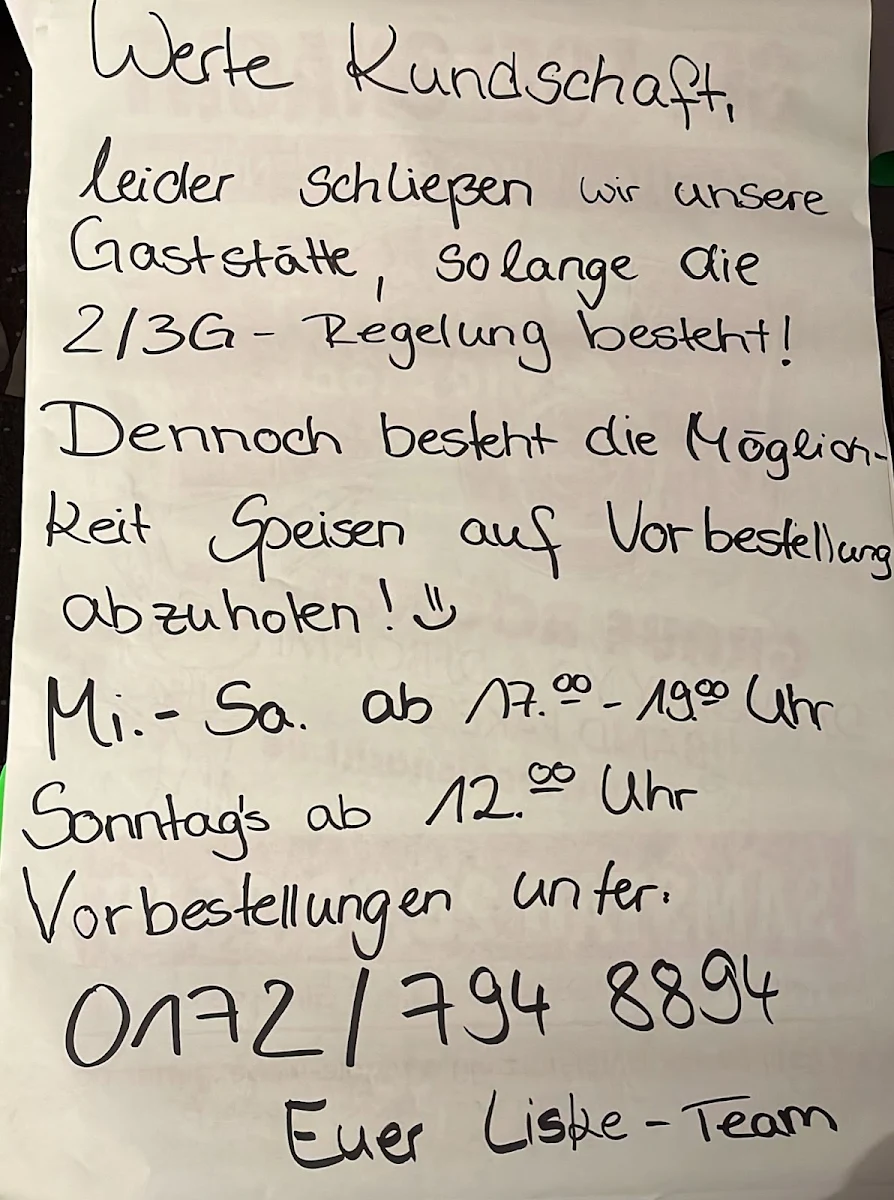 Werte Kundschaft,
leider schließen wir unsere
Gaststätte, solange die
2/3G - Regelung besteht!
Dennoch besteht die Möglich-
keit Speisen auf Vorbestellung
abzuholen! 
Mi.- Sa. ab 17.00 - 1900 Uhr
Sonntag's ab 12.00 Uhr
Vorbestellungen unter:
0172/794 8894
Euer Liske - Team